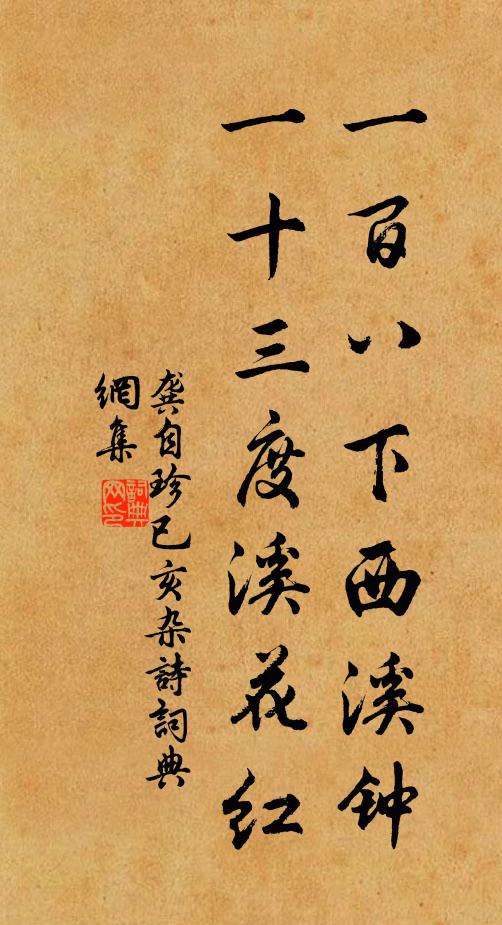 一百八下西溪钟
一十三度溪花红
龚自珍己亥杂詩詞典
網集
詞典網印